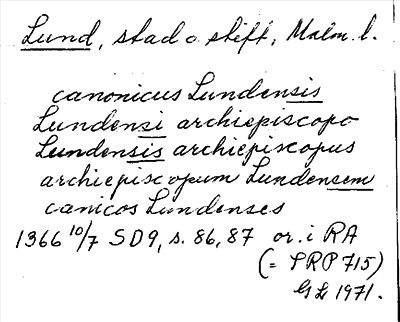 Lund, stad o stift, Malm. l.
canonicus Lundensis
Lundensi archiepiscopo
Lundensis archiepiscopus
archiepiscopum Lundensem
canicos Lundenses
1366 10/7 SD9, s. 86, 87 or. i RA
(= SRP 715)
GL 1971.